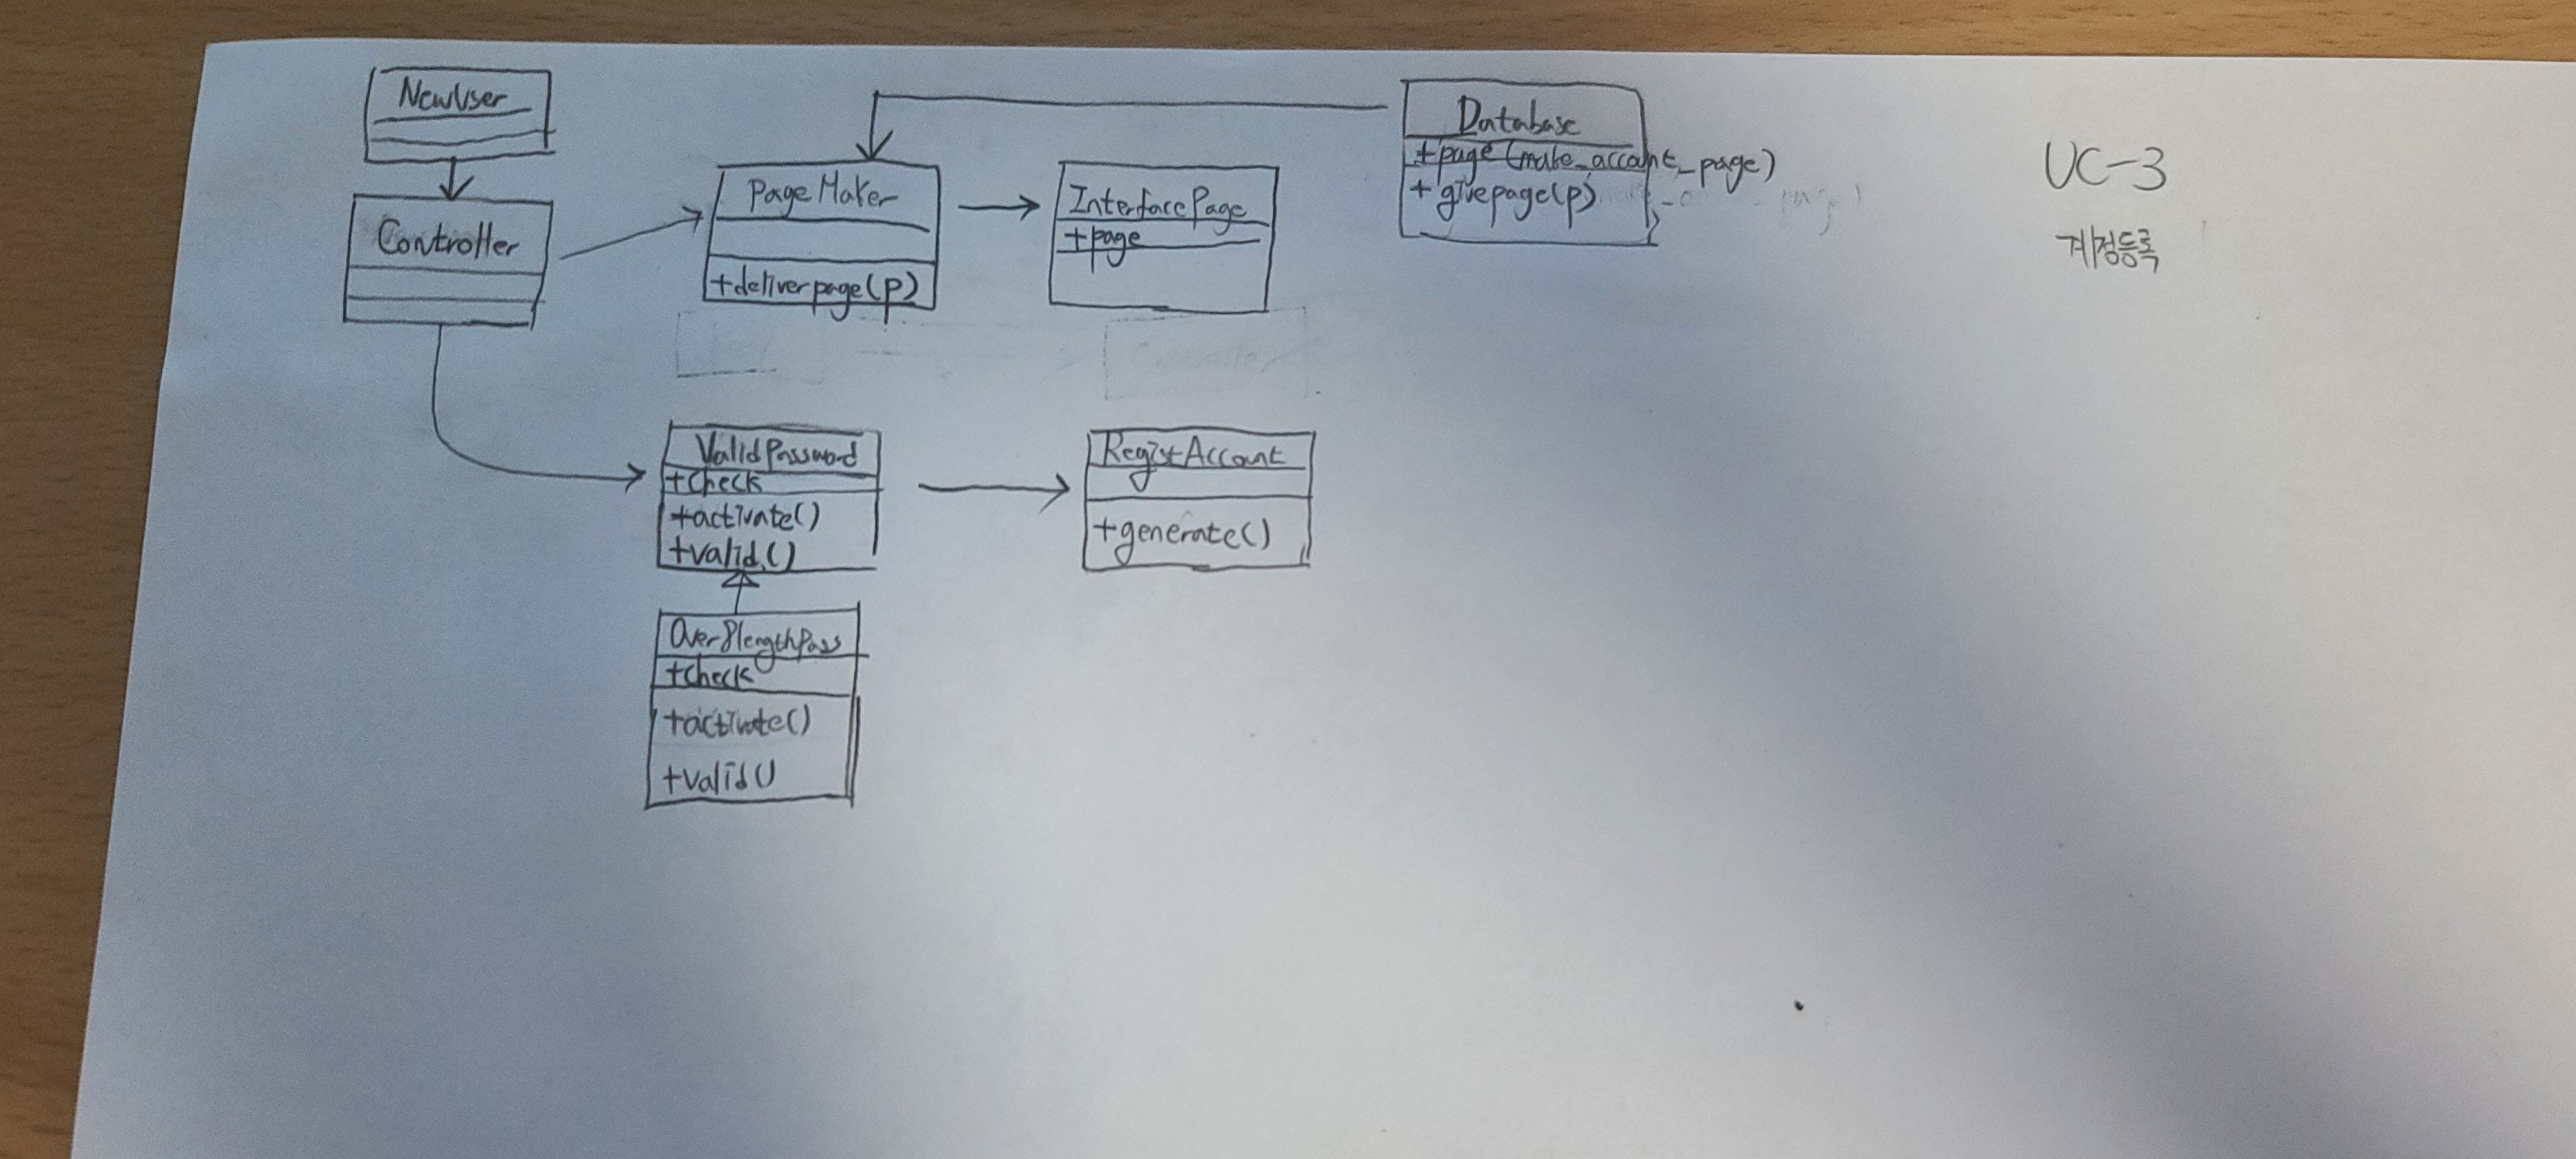 NewUser
Controller
Page Maker
+deliverpage(p)
InterfacePage
+page
Database
+page (make_accant_page)
+givepage(p)
UC-3
계정등록
ValidPassword
+check
+activate()
+valid()
RegistAccant
+generate()
Over8lengthPass
+check
+activate()
+valid()